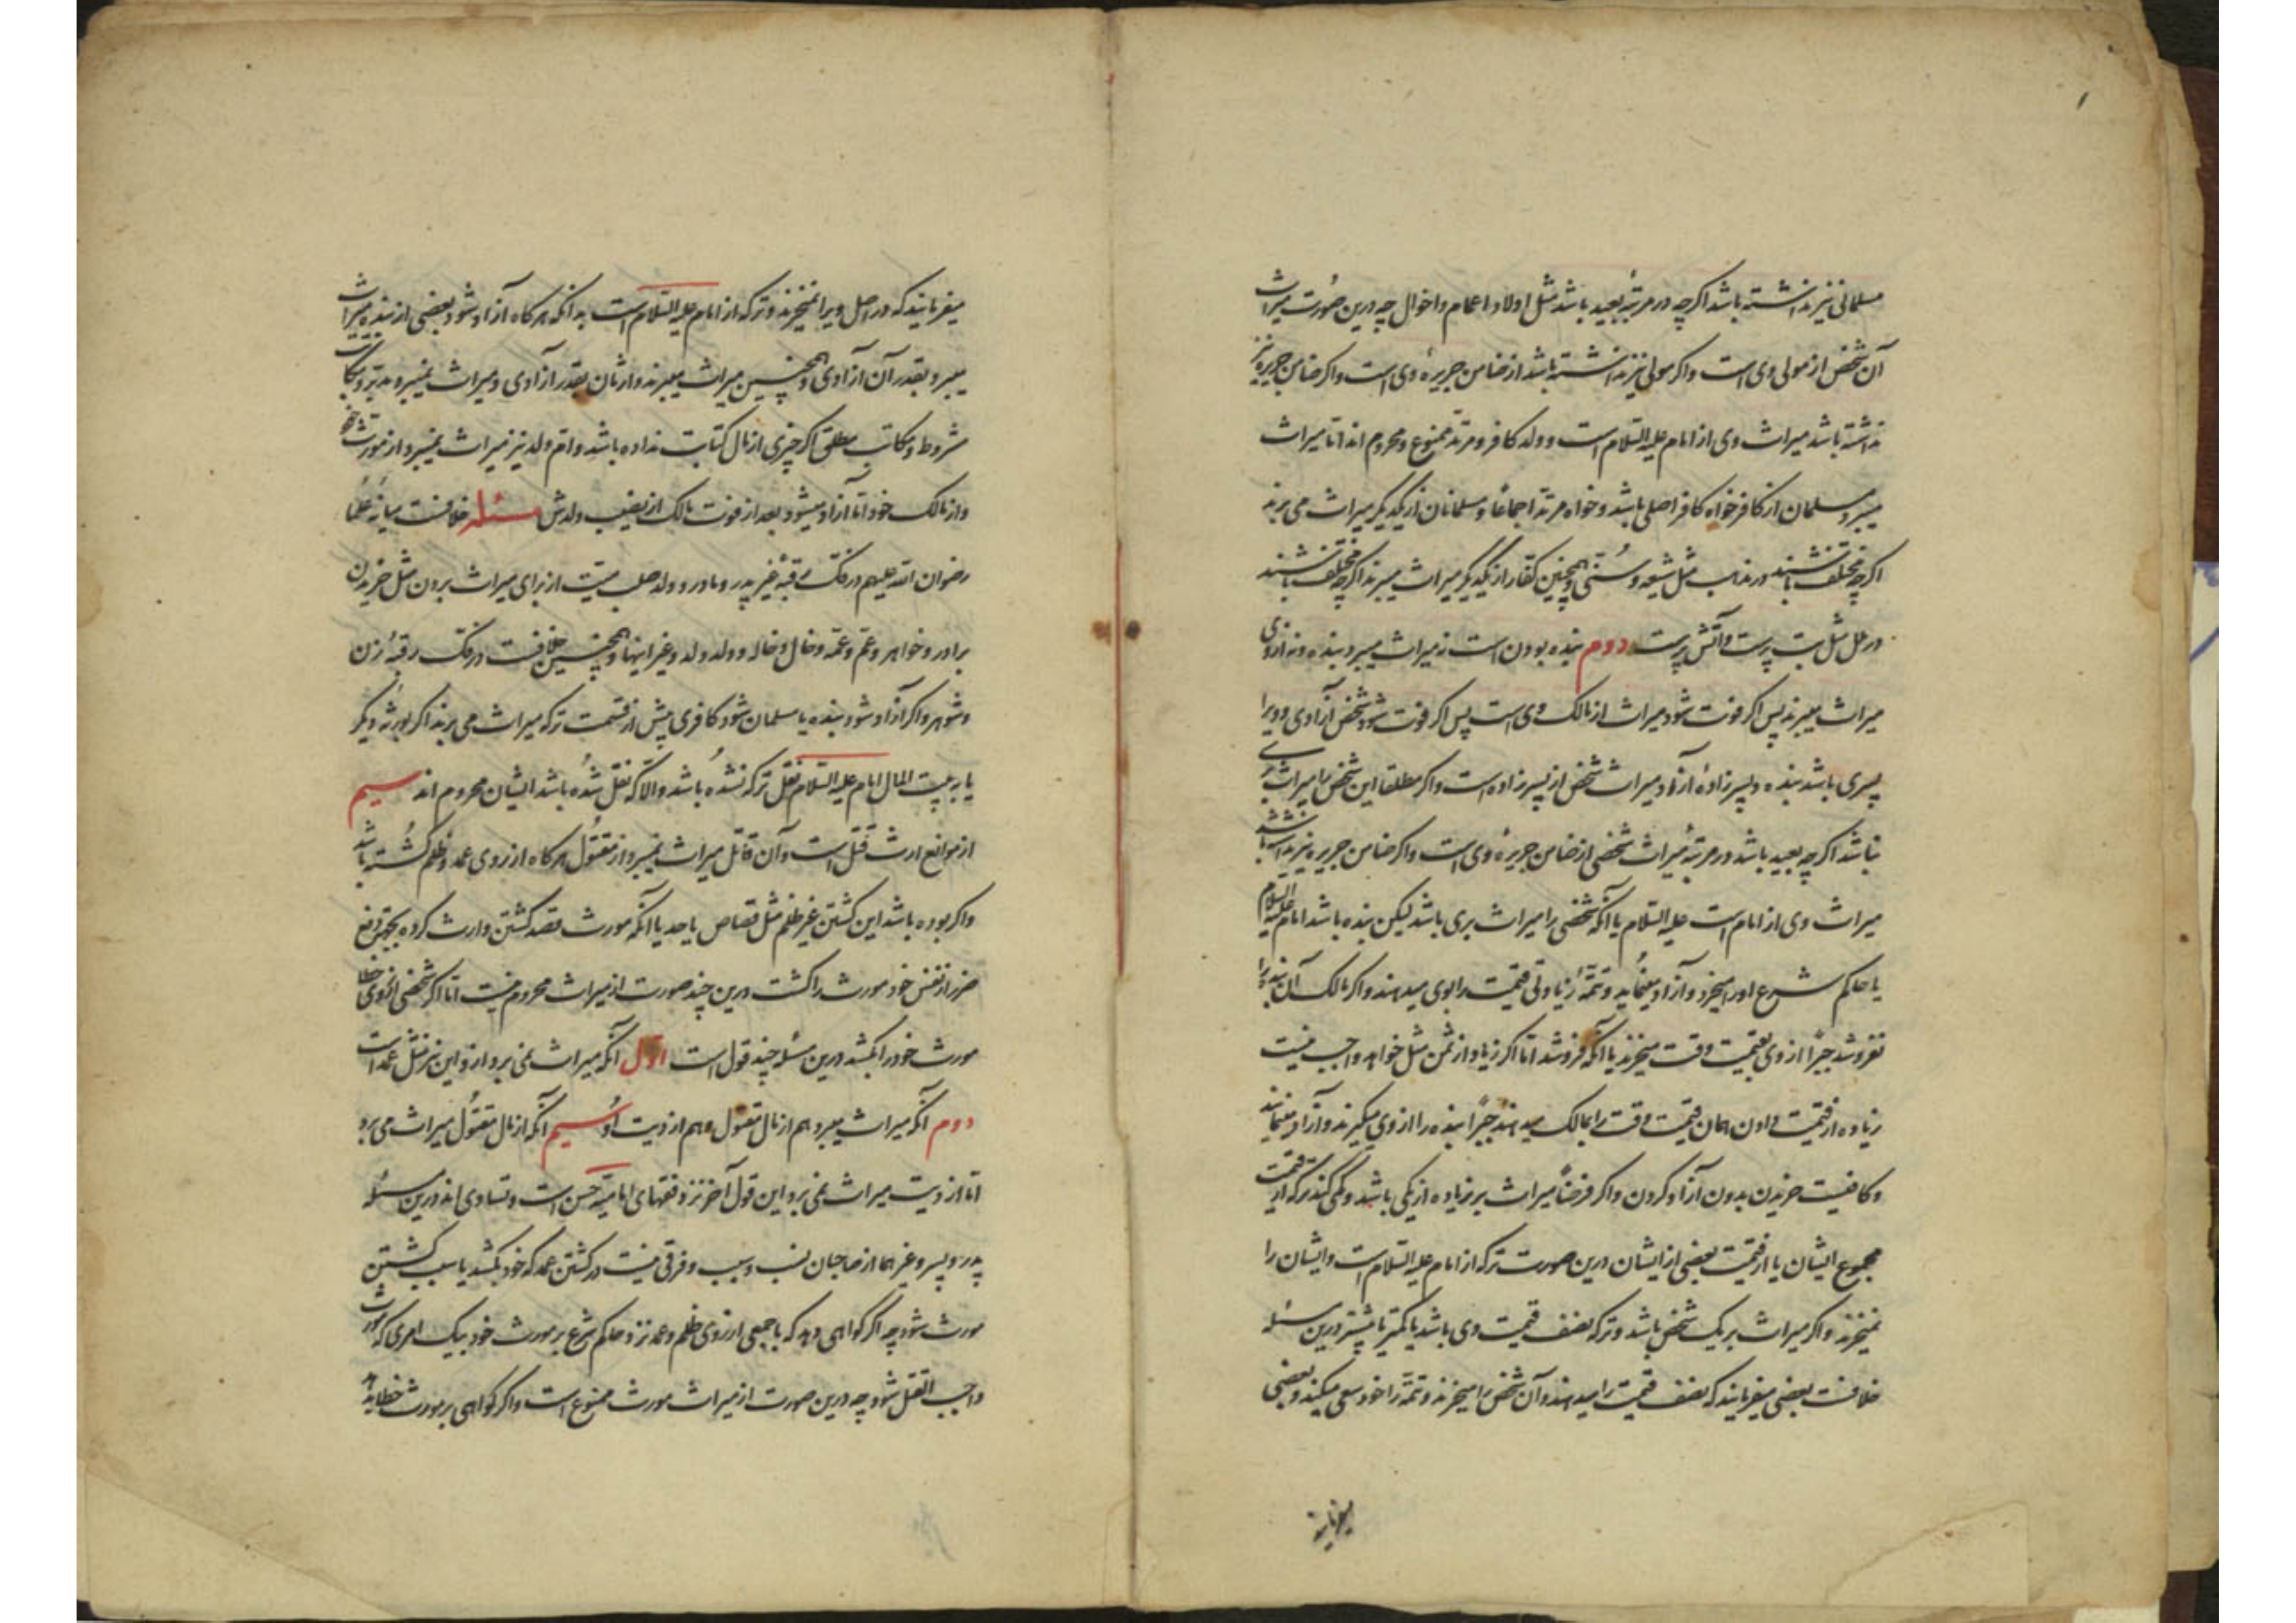 مسلمانی نیز نداشته باشد اکرچه در مرتبهٔ بعید باشد مثل اولاد اعمام و اخوال چه درین صورت میراث
آن شخص از مولی وی است و اکر مولی نیز نداشته باشد از ضامن جریرهٔ وی است و اکر ضامن جریره نیز
نداشته باشد میراث وی از امام علیه السلام است و ولد کافر و مرتد ممنوع و محروم اند اما میراث
میبرد مسلمان از کافر خواه کافر اصلی باشد و خواه مرتد اجماعا و مسلمانان از یکدیکر میراث می برند
اکرچه مختلف باشند در مذاهب مثل شیعه و سنی و همچنین کفار از یکدیکر میراث میبرند اکرچه مختلف باشند
در ملل مثل بت پرست و آتش پرست دوم بنده بودن است نه میراث میبرد بنده و نه از وی
میراث میبرند پس اکر فوت شود میراث از مالک وی است پس اکر فوت شود شخص آزادی و ویرا
پسری باشد بنده و پسر زادهٔ آزاد میراث شخص از پسر زاده است و اکر مطلقا این شخص را میراث بری
نباشد اکرچه بعید باشد در مرتبهٔ میراث شخص از ضامن جریرهٔ وی است و اکر ضامن جریره نیز نداشته باشد
میراث وی از امام است علیه السلام یا آنکه شخصی را میراث بری باشد لیکن بنده باشد امام علیه السلام
یا حاکم شرع اورا میخرد و آزاد مینماید و تتمهٔ زیادتی قیمت را بوی میدهند و اکر مالک آن بنده را
نفروشد جبرا از وی بقیمت وقت میخرند یا آنکه فروشد اما اکر زیاد از ثمن مثل خواهد واجب نیست
زیاده از قیمت دادن همان قیمت وقت را بمالک میدهند جبرا بنده را از وی میکیرند و آزاد مینمایند
و کافیست خریدن بدون آزاد کردن و اکر فرضا میراث بر زیاده از یکی باشد و کمی کند ترکه از قیمت
مجموع ایشان یا از قیمت بعضی از ایشان درین صورت ترکه از امام علیه السلام است و ایشان را
نمیخرند و اکر میراث بر یک شخص باشد و ترکه نصف قیمت وی باشد یا کمتر یا بیشتر درین مسئله
خلافست بعضی میفرمایند که نصف قیمت را میدهند و آن شخص را میخرند و تتمه را خود سعی میکند و بعضی
میفرمایند
میفرمایند که در اصل ویرا نمیخرند و ترکه از امام علیه السلام است بدانکه هرکاه آزاد شود بعضی از بنده میراث
میبرد بقدر آن آزادی و همچنین میراث میبرند وارثان بقدر آزادی و میراث نمیبرد مدبر و مکاتب
مشروط و مکاتب مطلق اکر چیزی از مال کتابت نداده باشد و ام ولد نیز میراث نمیبرد از مورث خود
و از مالک خود اما آزاد میشود بعد از فوت مالک از نصیب ولدش مسئله خلافست میانهٔ علما
رضوان الله علیهم در فک رقبهٔ غیر پدر و مادر و ولد صلب میت از برای میراث بردن مثل خریدن
برادر و خواهر و عم و عمه و خال و خاله و ولد ولد و غیر اینها و همچنین خلافست در فک رقبهٔ زن
و شوهر و اکر آزاد شود بنده یا مسلمان شود کافری پیش از قسمت ترکه میراث می برند اکر بورثهٔ دیکر
یا به بیت المال امام علیه السلام نقل ترکه نشده باشد و الا که نقل شده باشد ایشان محروم اند سیم
از موانع ارث قتل است و آن قاتل میراث نمیبرد از مقتول هرکاه از روی عمد و ظلم کشته باشد
و اکر بوده باشد این کشتن غیر ظلم مثل قصاص یا حد یا آنکه مورث قصد کشتن وارث کرده بجهت دفع
ضرر از نفس خود مورث را کشت درین چند صورت از میراث محروم نیست اما اکر شخصی از روی خطا
مورث خود را بکشد درین مسئله چند قول است اول آنکه میراث نمی برد از و این نیز مثل عمد است
دوم آنکه میراث میبرد هم از مال مقتول و هم از دیت او سیم آنکه از مال مقتول میراث می برد
اما از دیت میراث نمی برد این قول آخر نزد فقهای امامیه حسن است و تساوی اند درین مسئله
پدر و پسر و غیر هما از صاحبان نسب و سبب و فرقی نیست در کشتن عمد که خود بکشد یا سبب کشتن
مورث شود چه اکر کواهی دهد که با جمعی از روی ظلم و عمد نزد حاکم شرع بر مورث خود بیک امری که مورث
واجب القتل شود چه درین صورت از میراث مورث ممنوع است و اکر کواهی بر مورث خطا